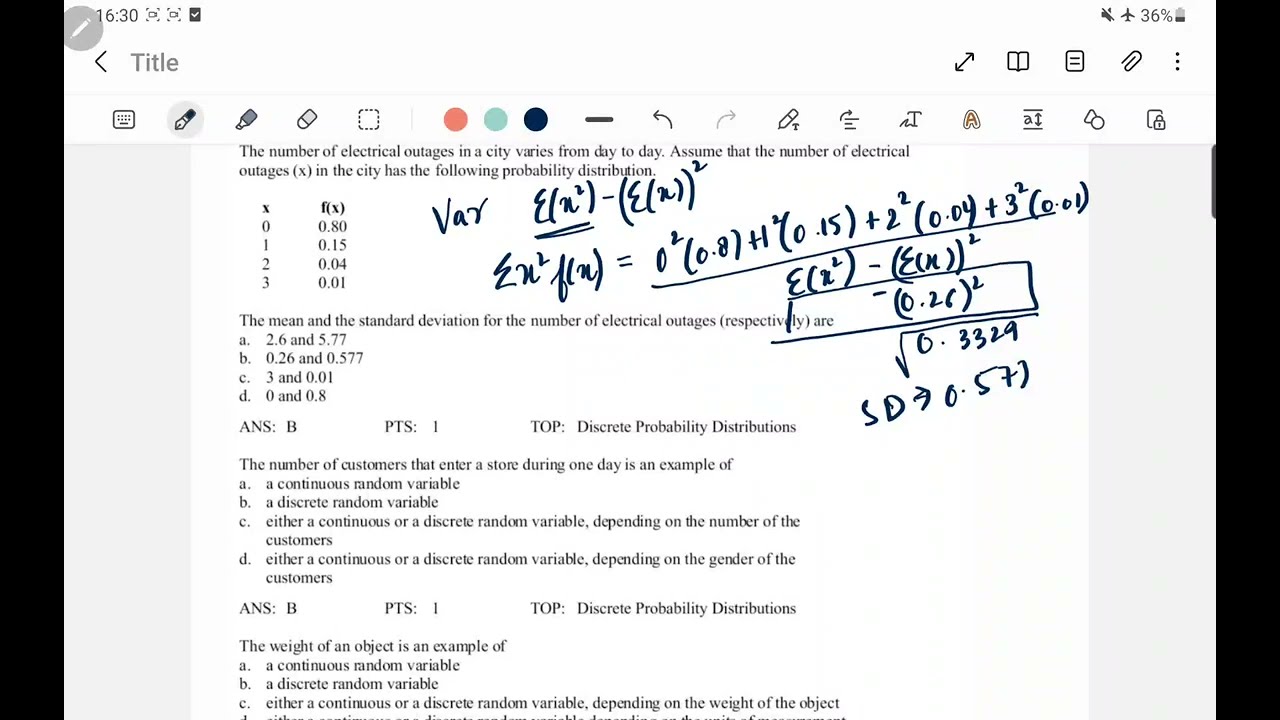 16:30
36%
Title
The number of electrical outages in a city varies from day to day. Assume that the number of electrical
outages (x) in the city has the following probability distribution.
Var Σ(x²) - (Σ(x))²
x f(x)
0 0.80
1 0.15
2 0.04
3 0.01
Σx² f(x) = 0²(0.8) + 1²(0.15) + 2²(0.04) + 3²(0.01)
Σ(x²) - (Σ(x))²
-(0.26)²
The mean and the standard deviation for the number of electrical outages (respectively) are
√0.3329
a. 2.6 and 5.77
b. 0.26 and 0.577
c. 3 and 0.01
d. 0 and 0.8
SD → 0.577
ANS: B PTS: 1 TOP: Discrete Probability Distributions
The number of customers that enter a store during one day is an example of
a. a continuous random variable
b. a discrete random variable
c. either a continuous or a discrete random variable, depending on the number of the
customers
d. either a continuous or a discrete random variable, depending on the gender of the
customers
ANS: B PTS: 1 TOP: Discrete Probability Distributions
The weight of an object is an example of
a. a continuous random variable
b. a discrete random variable
c. either a continuous or a discrete random variable, depending on the weight of the object